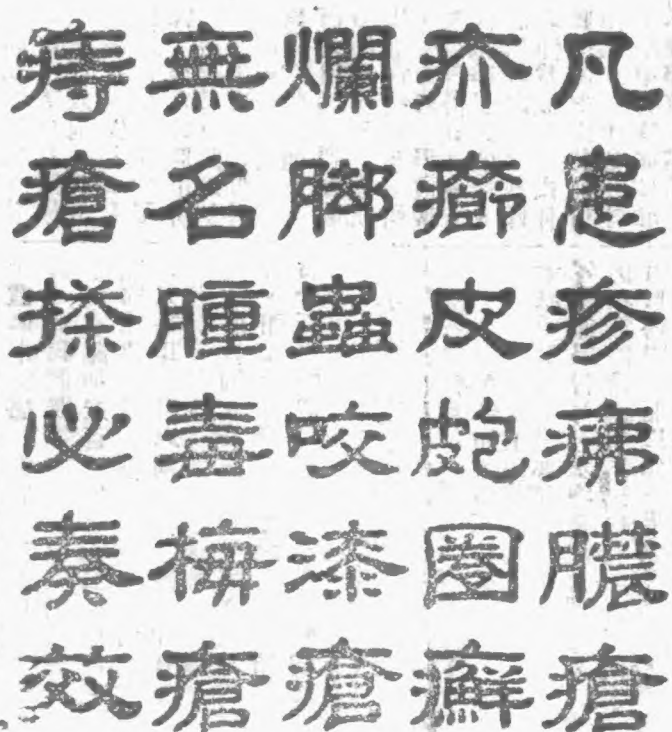 凡患疹疿膿瘡
疥癤皮皰圈癬
爛脚蟲咬漆瘡
無名腫毒梅瘡
痔瘡搽必奏效